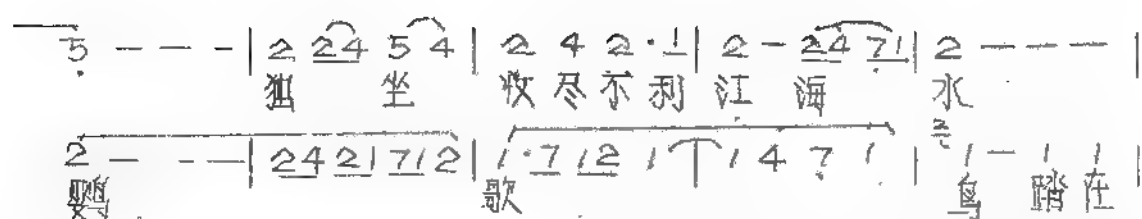 5 - - - | 2 24 5 4 | 2 4 2·1 | 2 - 24 71 | 2 - - - |
独 坐 收尽不利江 海 水
2 - - - | 24 21 71 2 | 1·7 12 1 | 1 4 7 1 | 1 - 1 1 |
鹦 歌 鸟 踏在